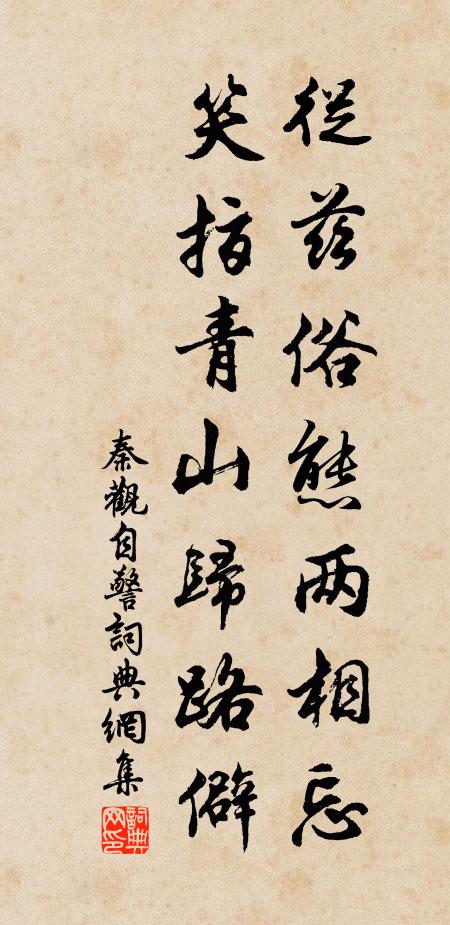 從茲俗態兩相忘
笑指青山歸路僻
秦觀自警詞典網集
詞典网印